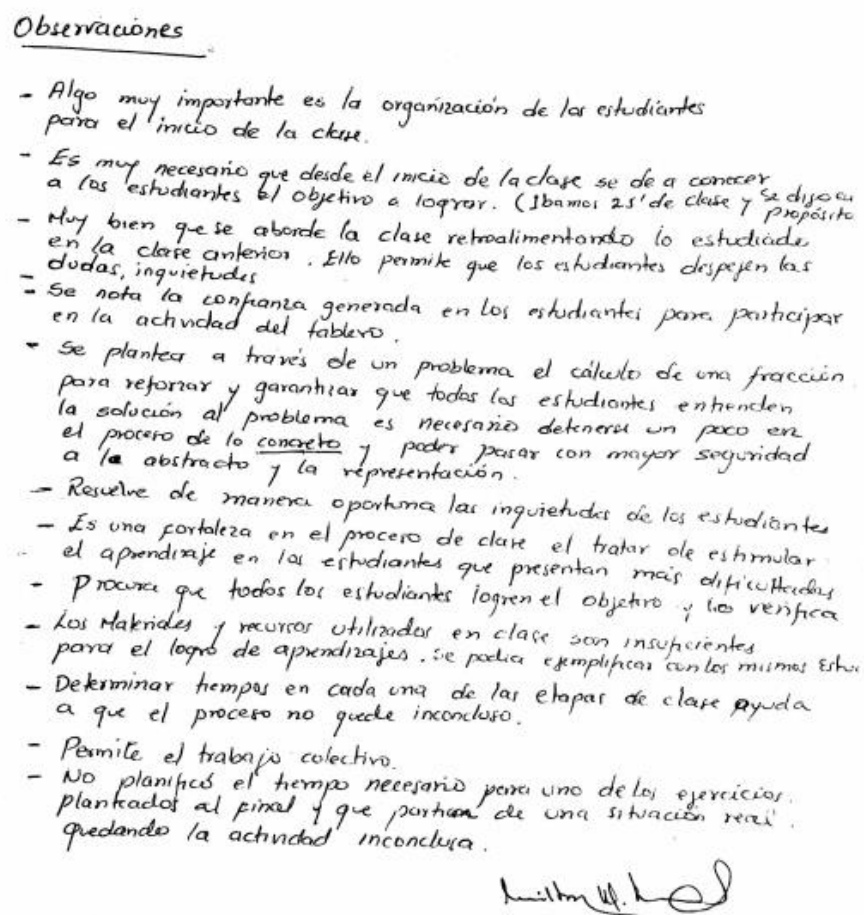 Observaciones
- Algo muy importante es la organización de los estudiantes
para el inicio de la clase.
- Es muy necesario que desde el inicio de la clase se de a conocer
a los estudiantes el objetivo a lograr. (Ibamos 25' de clase y se dijo cu
propósito
- Muy bien que se aborde la clase retroalimentando lo estudiado
en la clase anterior. Ello permite que los estudiantes despejen las
dudas, inquietudes
- Se nota la confianza generada en los estudiantes para participar
en la actividad del tablero.
- Se plantea a través de un problema el cálculo de una fracción
para reforzar y garantizar que todos los estudiantes entienden
la solución al problema es necesario detenerse un poco en
el proceso de lo concreto y poder pasar con mayor seguridad
a lo abstracto y la representación.
- Resuelve de manera oportuna las inquietudes de los estudiantes
- Es una fortaleza en el proceso de clase el tratar de estimular
el aprendizaje en los estudiantes que presentan más dificultades
- Procura que todos los estudiantes logren el objetivo y lo verifica
- Los Materiales y recursos utilizados en clase son insuficientes
para el logro de aprendizajes. Se podia ejemplificar con los mismos Estu
- Determinar tiempos en cada una de las etapas de clase ayuda
a que el proceso no quede inconcluso.
- Permite el trabajo colectivo.
- No planificó el tiempo necesario para uno de los ejercicios
planteados al final y que partian de una situación real.
quedando la actividad inconclusa.